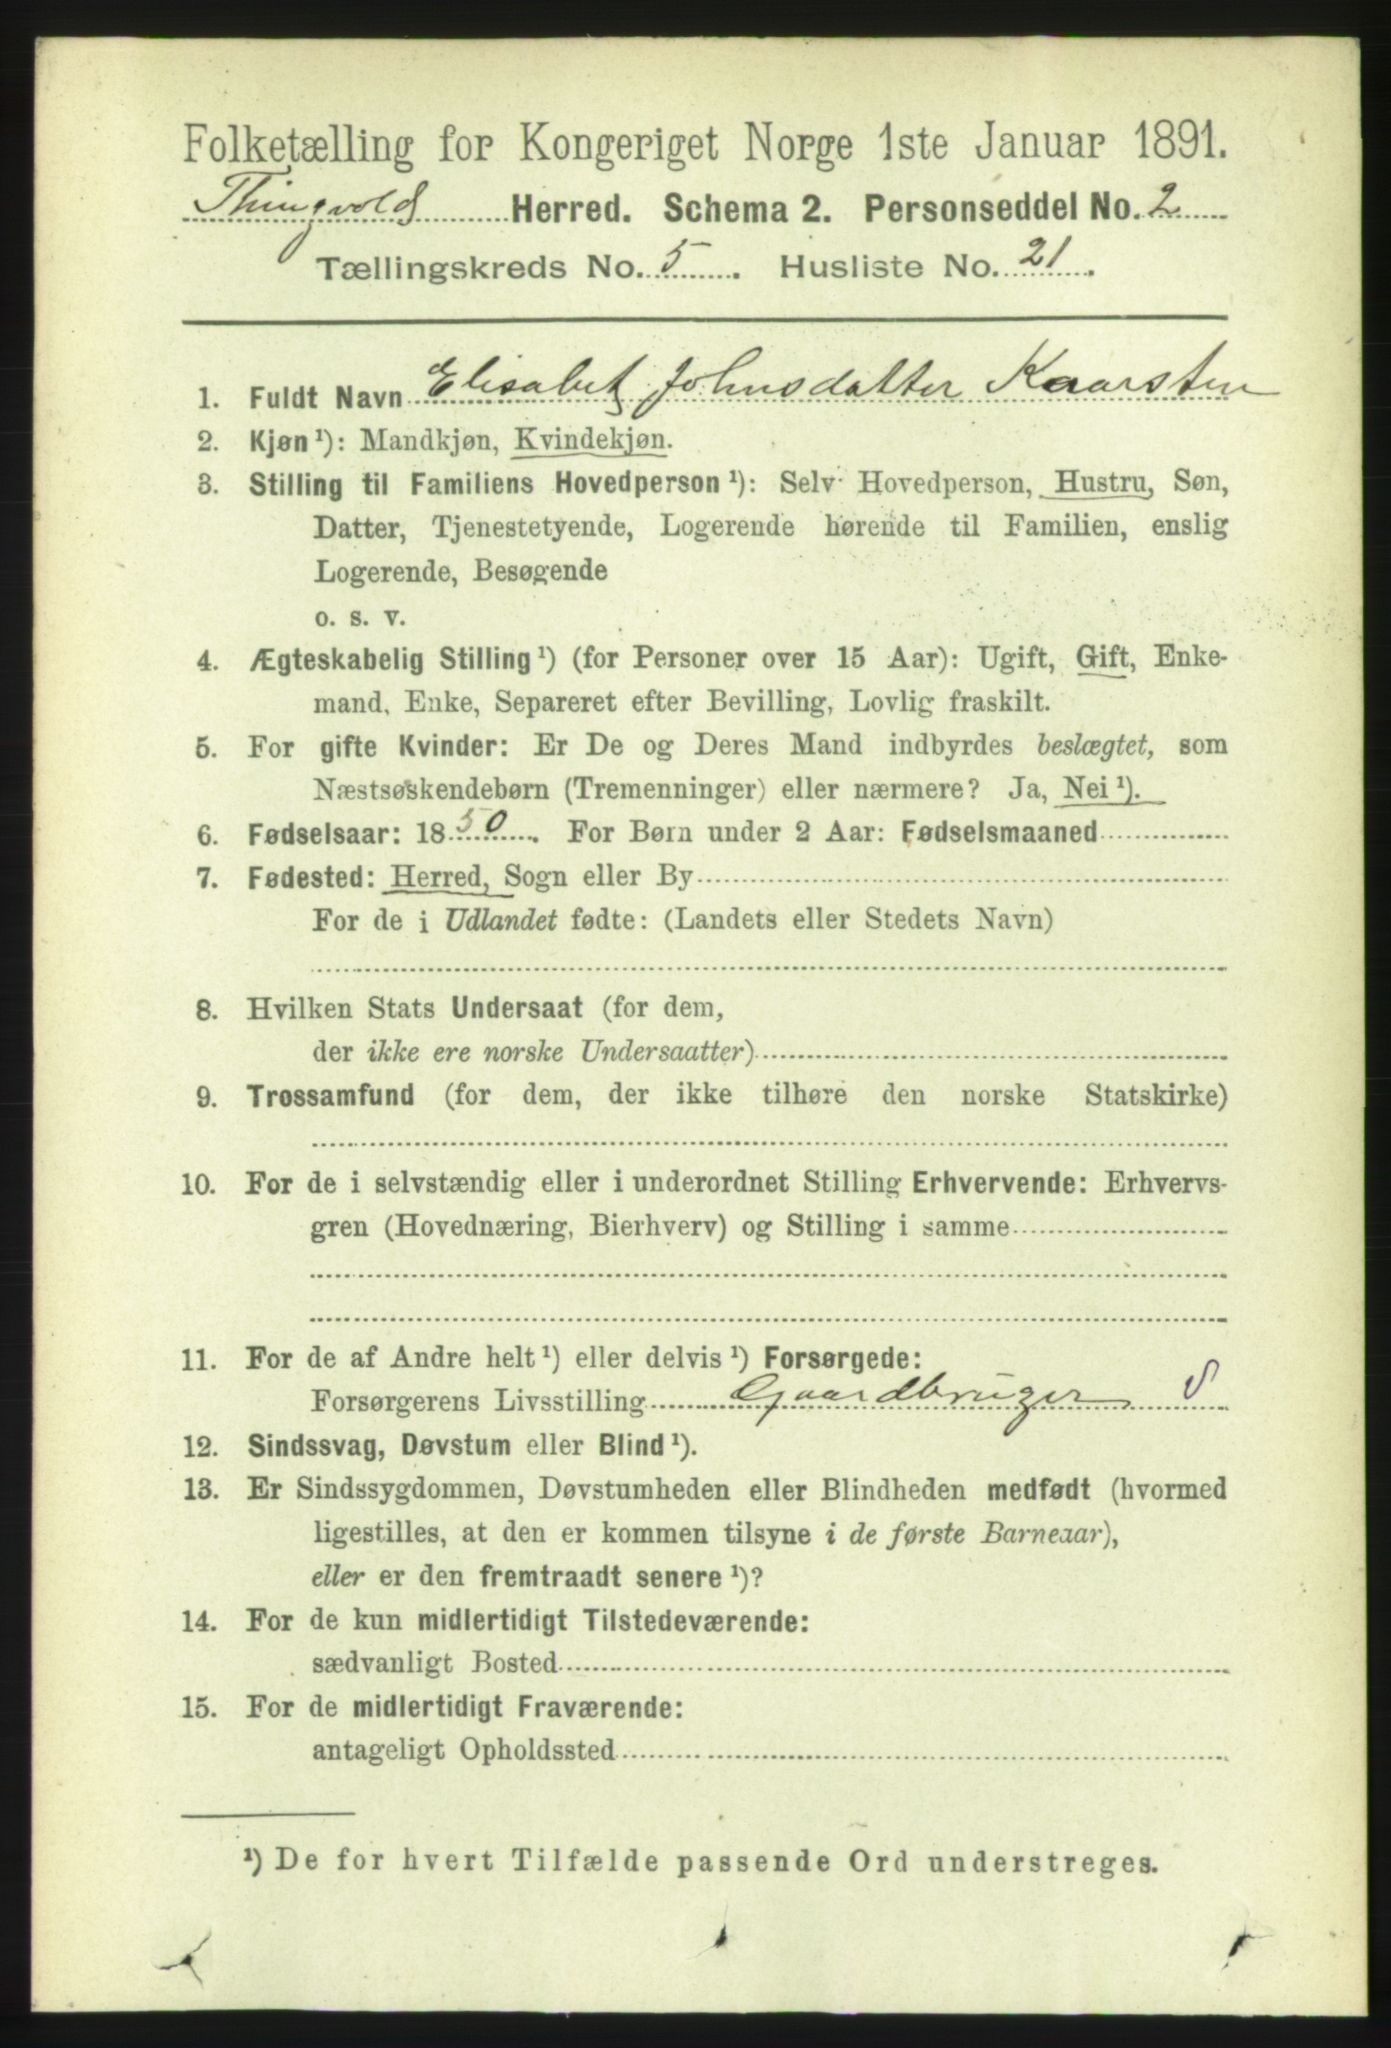 Folketælling for Kongeriget Norge 1ste Januar 1891.
Thingvold Herred. Schema 2. Personseddel No. 2
Tællingskreds No. 5. Husliste No. 21.
1. Fuldt Navn Elisabet Johnsdatter Kaarsten
2. Kjøn¹): Mandkjøn, Kvindekjøn.
3. Stilling til Familiens Hovedperson¹): Selv Hovedperson, Hustru, Søn,
Datter, Tjenestetyende, Logerende hørende til Familien, enslig
Logerende, Besøgende
o. s. v.
4. Ægteskabelig Stilling¹) (for Personer over 15 Aar): Ugift, Gift, Enke-
mand, Enke, Separeret efter Bevilling, Lovlig fraskilt.
5. For gifte Kvinder: Er De og Deres Mand indbyrdes beslægtet, som
Næstsøskendebørn (Tremenninger) eller nærmere? Ja, Nei¹).
6. Fødselsaar: 1850. For Børn under 2 Aar: Fødselsmaaned
7. Fødested: Herred, Sogn eller By
For de i Udlandet fødte: (Landets eller Stedets Navn)
8. Hvilken Stats Undersaat (for dem,
der ikke ere norske Undersaatter)
9. Trossamfund (for dem, der ikke tilhøre den norske Statskirke)
10. For de i selvstændig eller i underordnet Stilling Erhvervende: Erhvervs-
gren (Hovednæring, Bierhverv) og Stilling i samme
11. For de af Andre helt¹) eller delvis¹) Forsørgede:
Forsørgerens Livsstilling Gaardbruger S
12. Sindssvag, Døvstum eller Blind¹).
13. Er Sindssygdommen, Døvstumheden eller Blindheden medfødt (hvormed
ligestilles, at den er kommen tilsyne i de første Barneaar),
eller er den fremtraadt senere¹)?
14. For de kun midlertidigt Tilstedeværende:
sædvanligt Bosted
15. For de midlertidigt Fraværende:
antageligt Opholdssted
¹) De for hvert Tilfælde passende Ord understreges.